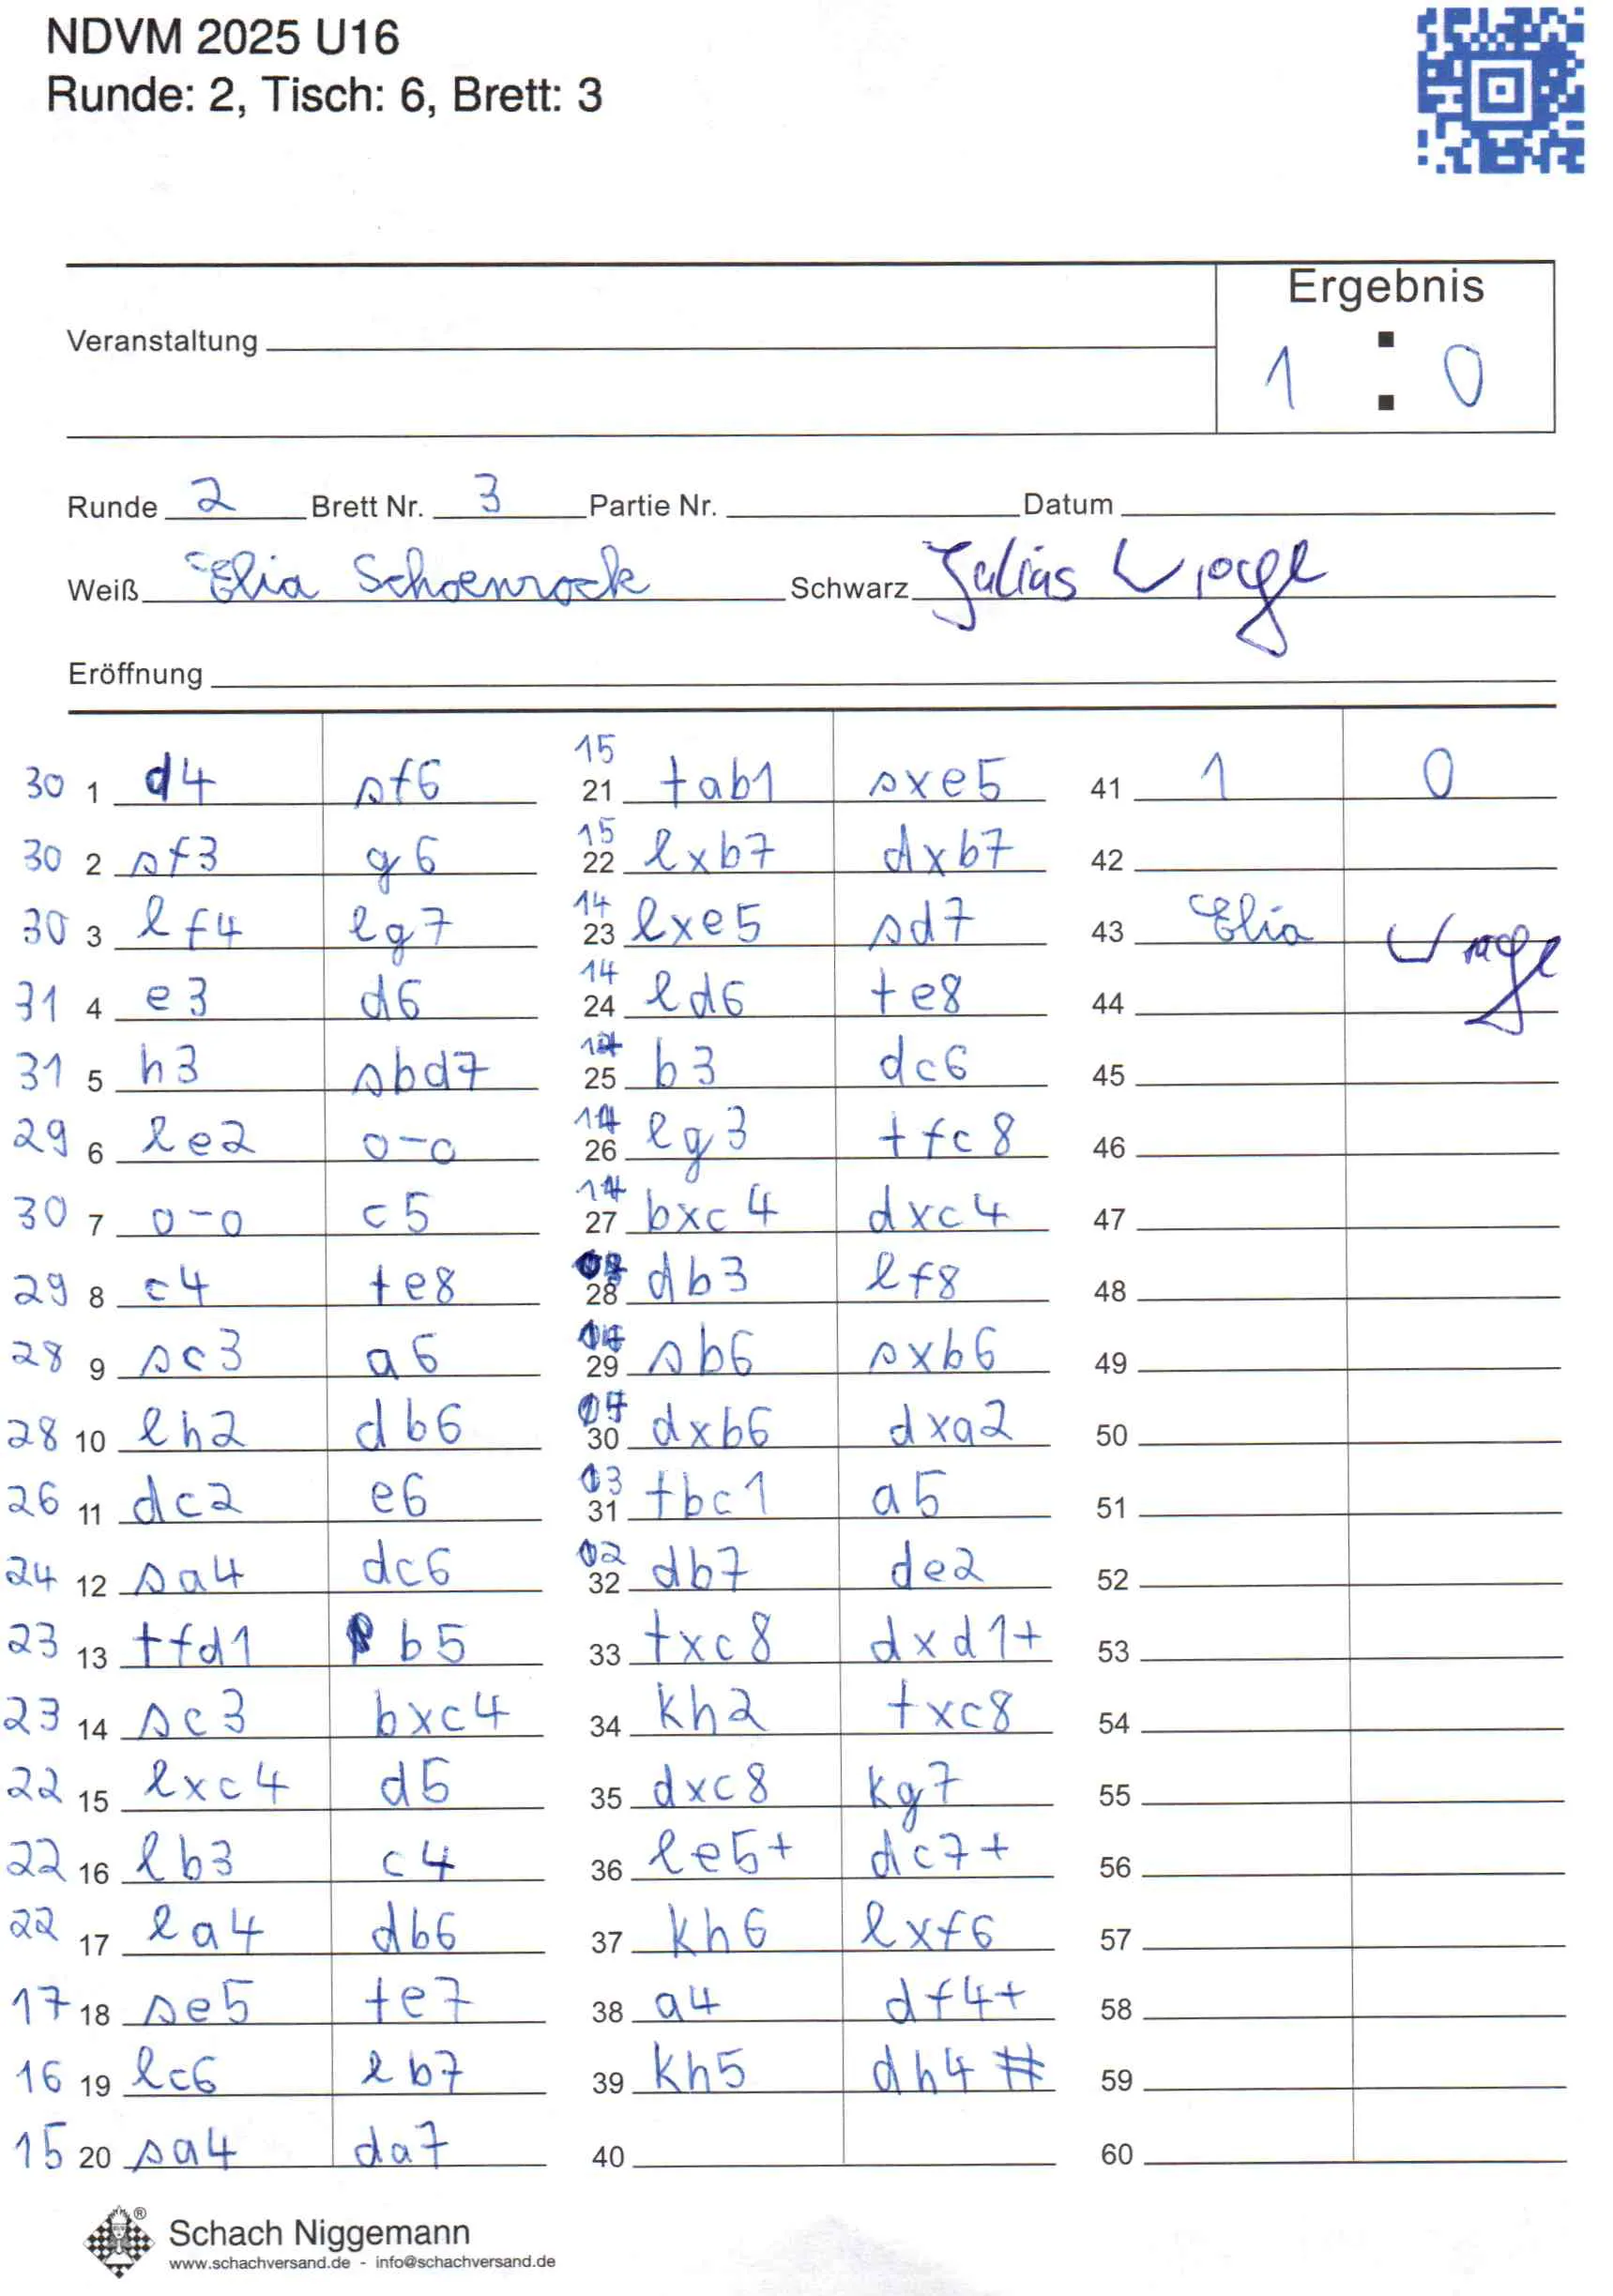 NDVM 2025 U16
Runde: 2, Tisch: 6, Brett: 3
Ergebnis
Veranstaltung
1 : 0
Runde 2 Brett Nr. 3 Partie Nr. Datum
Weiß Elia Schoenrock Schwarz Julius
Eröffnung
30 1 d4 sf6
30 2 sf3 g6
30 3 lf4 lg7
31 4 e3 d6
31 5 h3 sbd7
29 6 le2 0-0
30 7 0-0 c5
29 8 c4 te8
28 9 sc3 a6
28 10 lh2 db6
26 11 dc2 e6
24 12 sa4 dc6
23 13 tfd1 b5
23 14 sc3 bxc4
22 15 lxc4 d5
22 16 lb3 c4
22 17 la4 db6
17 18 se5 te7
16 19 lc6 lb7
15 20 sa4 da7
15 21 tab1 sxe5
15 22 lxb7 dxb7
14 23 lxe5 sd7
14 24 ld6 te8
25 b3 dc6
26 lg3 tfc8
27 bxc4 dxc4
28 db3 lf8
29 sb6 sxb6
30 dxb6 dxa2
31 tbc1 a5
32 db7 de2
33 txc8 dxd1+
34 kh2 txc8
35 dxc8 kg7
36 le5+ dc7+
37 kh6 lxf6
38 a4 df4+
39 kh5 dh4#
40
41 1 0
42
43 Elia
44
45
46
47
48
49
50
51
52
53
54
55
56
57
58
59
60
Schach Niggemann
www.schachversand.de - info@schachversand.de